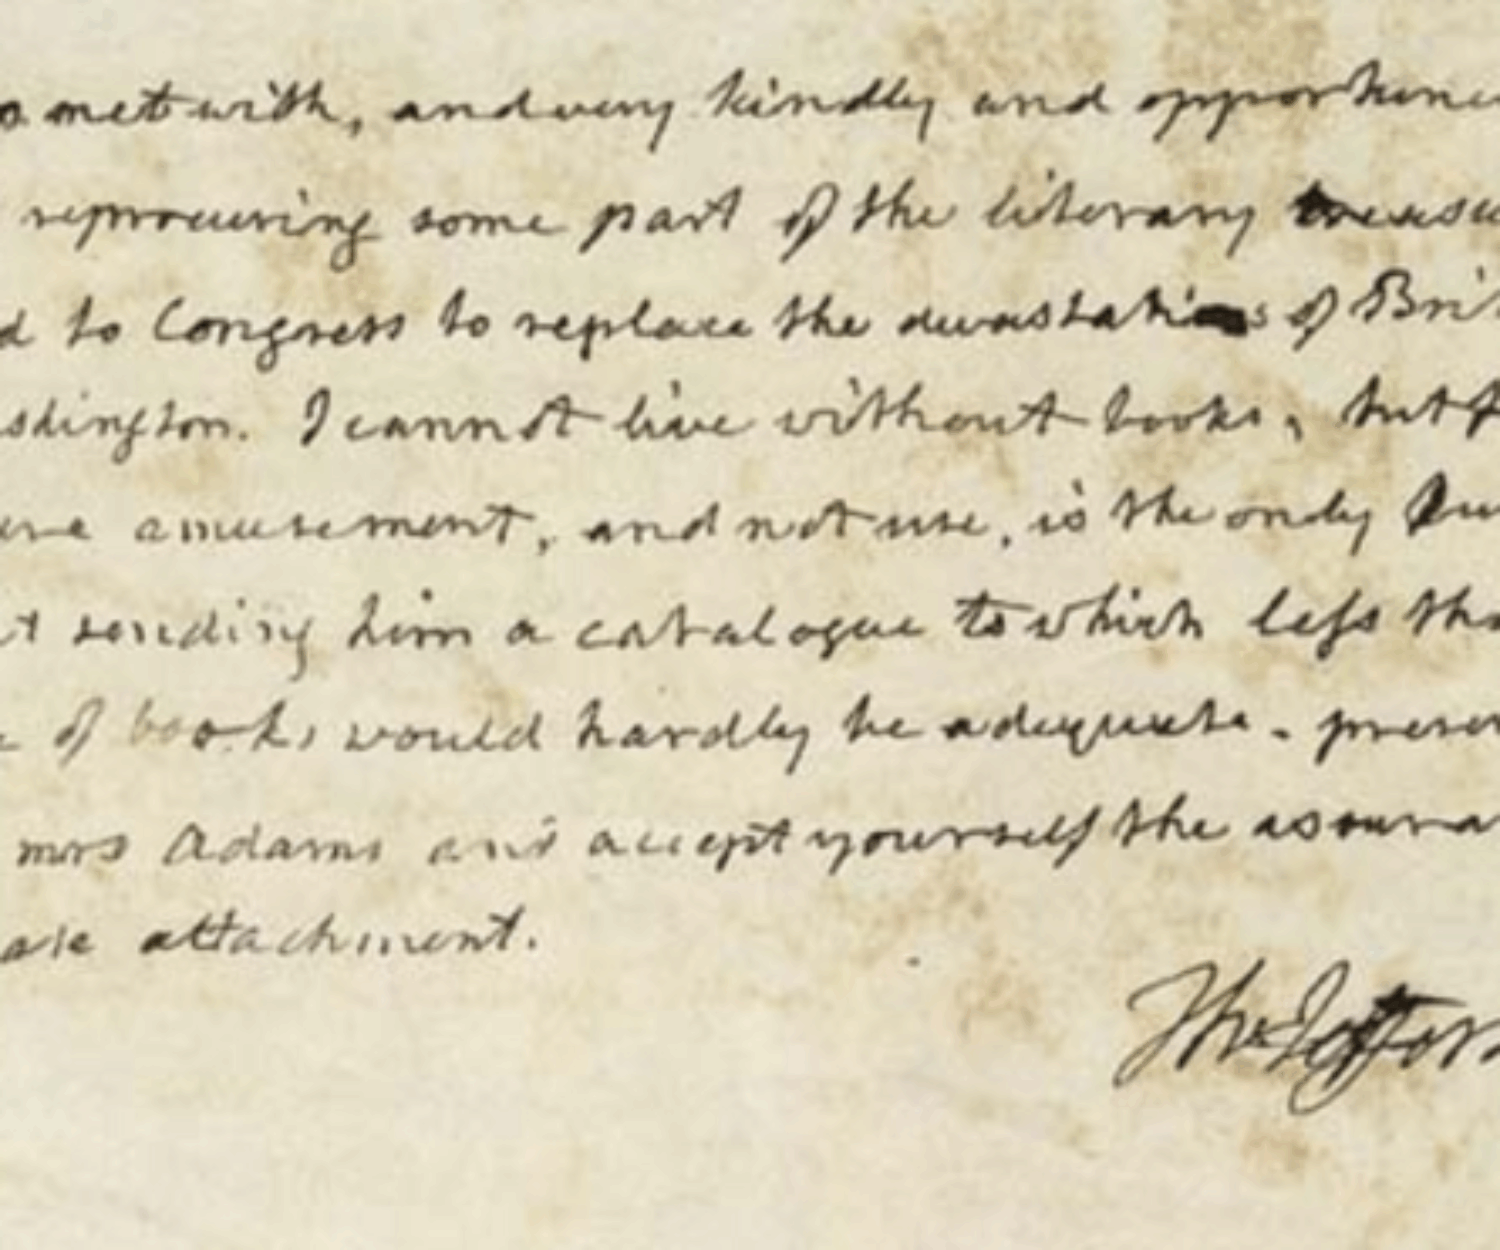 met with, and very kindly and opportune
reprocuring some part of the literary treasu
d to Congress to replace the devastations of Brit
shington. I cannot live without books, but f
ure amusement, and not use, is the only fu
t sending him a catalogue to which less tha
of books would hardly be adequate. presen
mrs Adams and accept yourself the assura
attachment.
Th: Jefferso